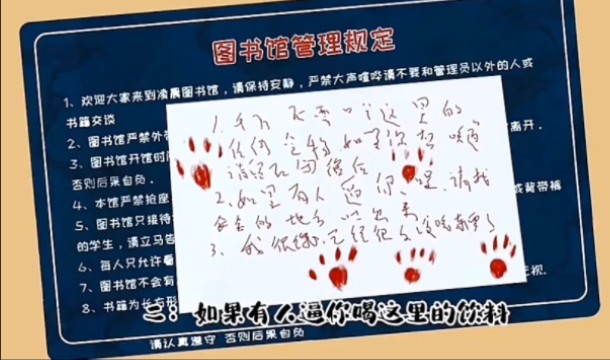 图书馆管理规定
1、欢迎大家来到凌晨图书馆，请保持安静，严禁大声喧哗请不要和管理员以外的人或
书籍交谈
2、图书馆严禁外 离开.
3、图书馆开馆时
否则后果自负.
4、本馆严禁抢座 或背带裤
5、图书馆只接待
的学生，请立马告
6、每人只允许看
7、图书馆不会有 无视.
8、书籍为长方形
请认真遵守 否则后果自负
1. 千万不要 这里的
任何 如果你想喝
请
2. 如果有人逼你喝，请找
安全的地方吐出来
3、我很 已经很久没喝 了
二：如果有人逼你喝这里的饮料